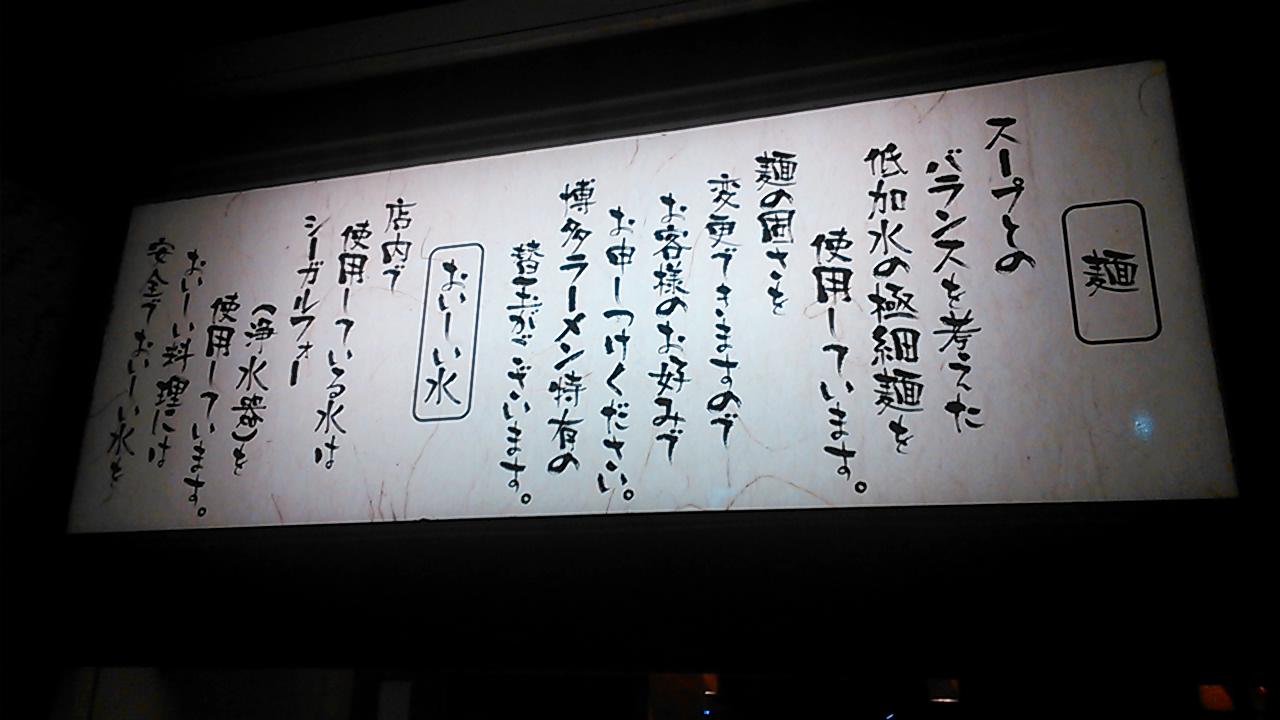 麺
スープとの
バランスを考えた
低加水の極細麺を
使用しています。
麺の固さを
変更できますので
お客様のお好みで
お申しつけください。
博多ラーメン特有の
替玉がございます。
おいしい水
店内で
使用している水は
シーガルフォー
（浄水器）を
使用しています。
おいしい料理には
安全でおいしい水を